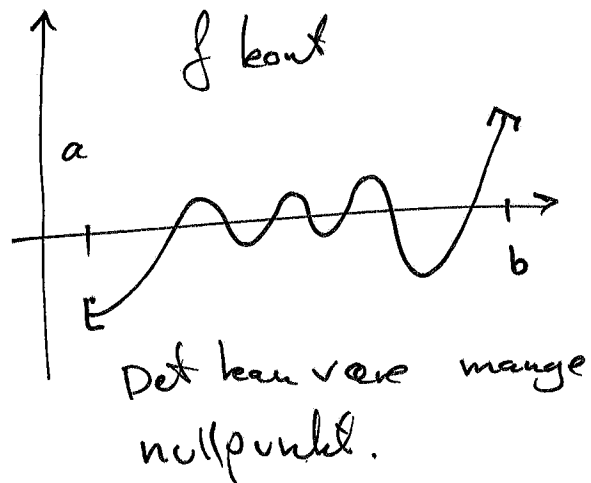 f kont
a
b
Det kan være mange
nullpunkt.